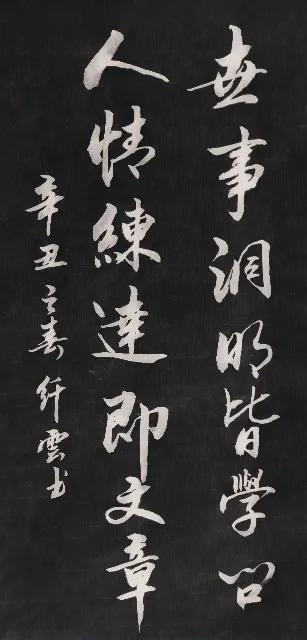 世事洞明皆學问
人情練達即文章
辛丑之春纤雲书